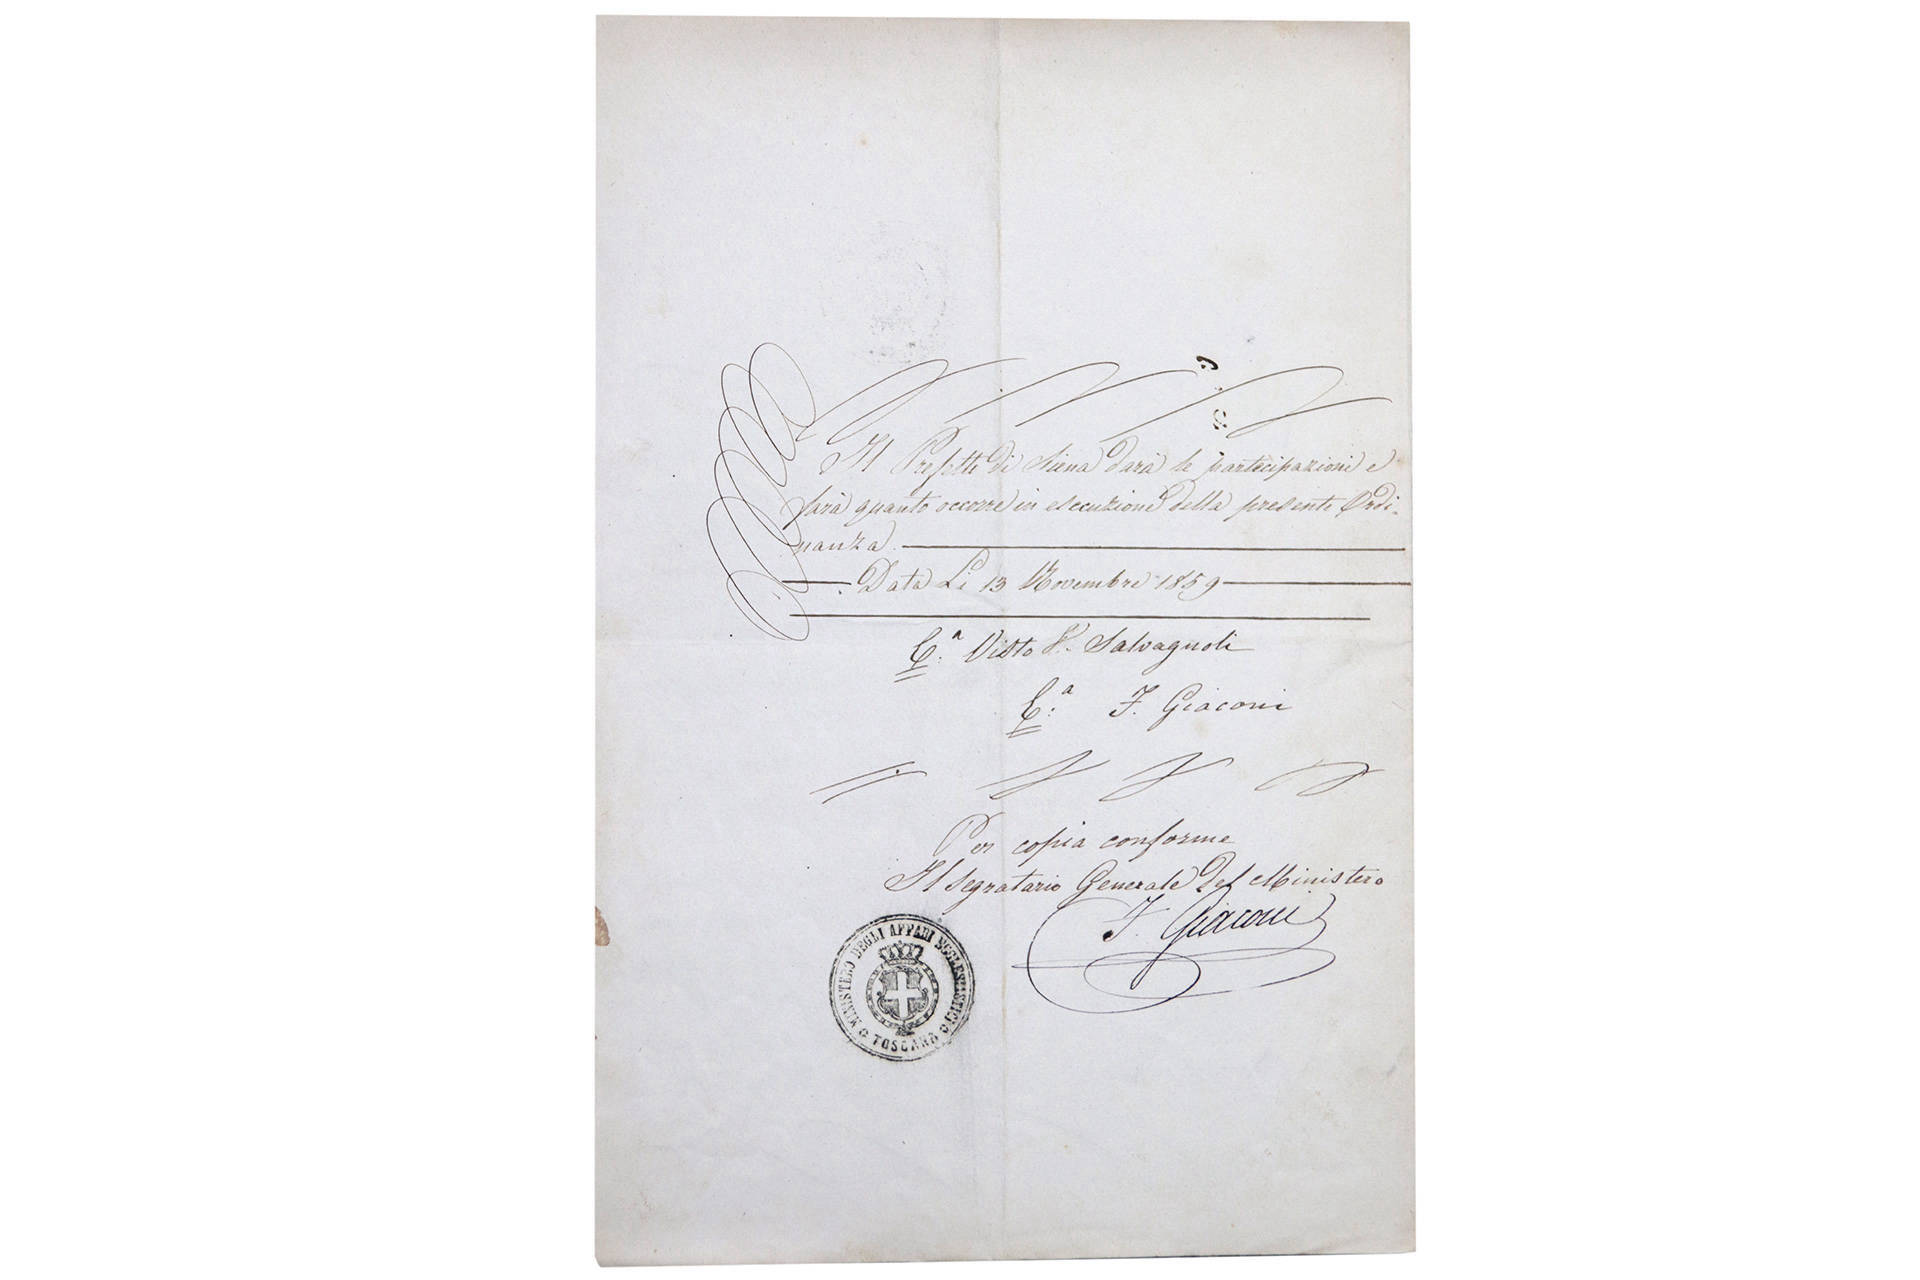 Il Prefetto di Siena darà le partecipazioni e
farà quanto occorre in esecuzione della presente Ordi-
nanza
Data Li 13 Novembre 1859
C.ª Visto V. Salvagnoli
C.ª F. Giaconi
Per copia conforme
Il Segretario Generale del Ministero
F. Giaconi
MINISTERO DEGLI AFFARI ECCLESIASTICI
TOSCANA